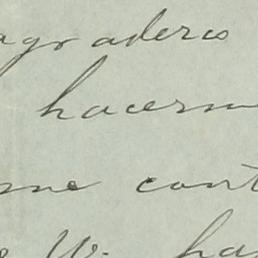 agradeceros
hacerm
me cont
W. ha